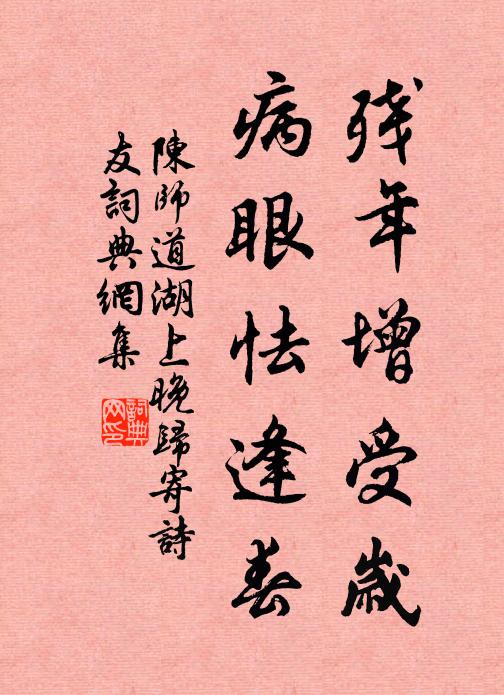 残年增受歲
病眼怯逢春
陳師道湖上晚歸寄詩
友詞典網集
詞典
网印